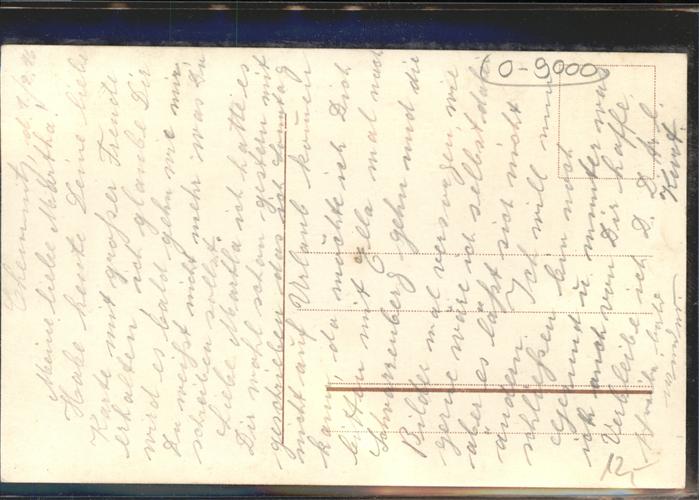 Chemnitz, d.
Meine liebe Martha!
Habe heute Deine liebe
Karte mit großer Freude
erhalten ich glaube Dir
wird es bald gehn wie mir
Du weißt nicht mehr was Du
schreiben sollst.
Liebe Martha ich hatte es
Dir wohl schon gestern mit
geschrieben das ich Sonntag
nicht auf Urlaub kommen
kann, da möchte ich Dich
bitten mit Ella mal nach
Schwarzenberg gehn und die
Bilder mal versorgen, wie
gerne wäre ich selbst da
aber es läßt sich nicht
ändern. Ich will nun
schließen bin noch
gesund u. munter was
ich auch von Dir hoffe.
Verbleibe ich D. D. tr. l.
Kurt.
Schreibe bald
wieder.
0-9000
12,-